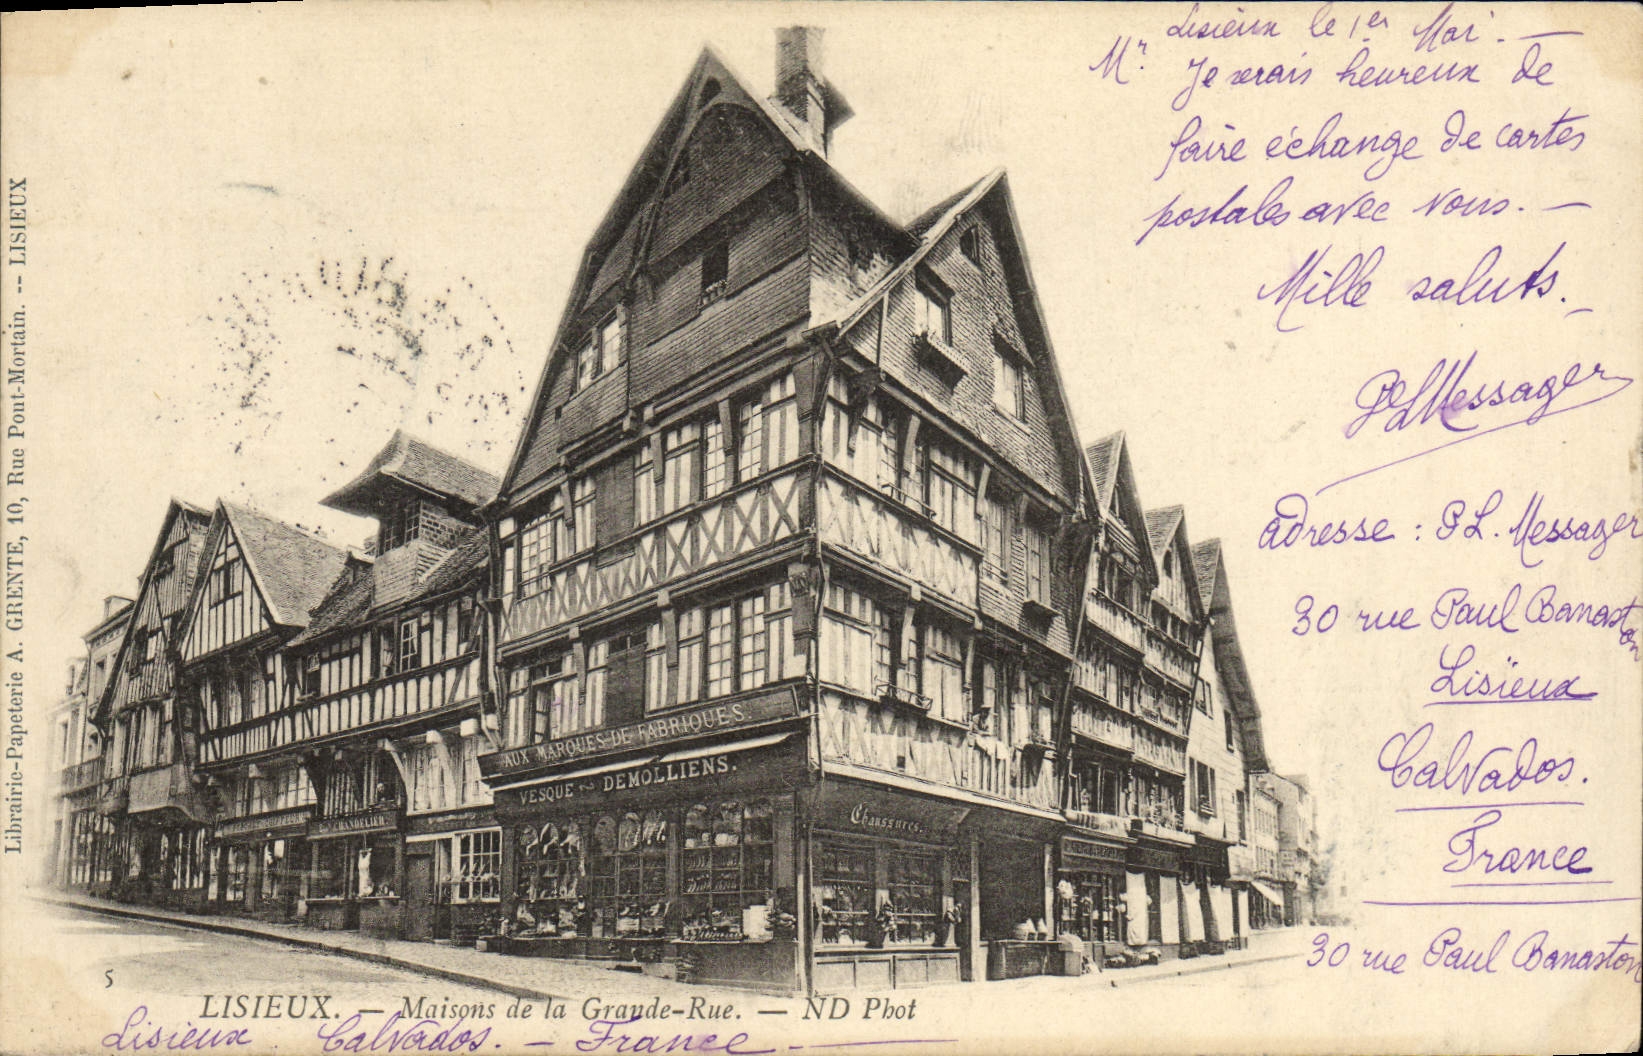 Lisieux le 1er Mai. —
Mr. Je serais heureux de
faire échange de cartes
postales avec vous. —
Mille saluts. _
PLMessager
adresse : PL. Messager
30 rue Paul Banaston
Lisïeux
Calvados.
France
30 rue Paul Banaston
Librairie-Papeterie A. GRENTE, 10, Rue Pont-Mortain. -- LISIEUX
AUX MARQUES DE FABRIQUES.
VESQUE ~ DEMOLLIENS.
Chaussures.
CHANDELIER
5
LISIEUX. — Maisons de la Grande-Rue. — ND Phot
Lisieux Calvados. — France —